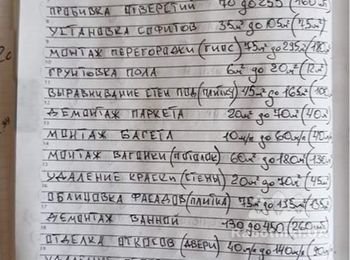 ПРОБИВКА ОТВЕРСТИЙ 70 до 255 (160
УСТАНОВКА СОФИТОВ 35м² до 105м² (75м²)
МОНТАЖ ПЕРЕГОРОДКИ (ГИПС) 75м² до 295м² (180
ГРУНТОВКА ПОЛА 6м² до 20м² (12м²)
ВЫРАВНИВАНИЕ СТЕН ПОД (ПЛИТКУ) 45м² до 165м² (
ДЕМОНТАЖ ПАРКЕТА 20м² до 70м² (40м²)
МОНТАЖ БАГЕТА 10м/п до 60м/п (40м/п
МОНТАЖ ВАГОНКИ (ПОТОЛОК) 60м² до 180м² (135м²
УДАЛЕНИЕ КРАСКИ (СТЕНЫ) 20м² до 70м² (45м²)
ОБЛИЦОВКА ФАСАДОВ (ПЛИТКА) 75м² до 195м² (135м²)
ДЕМОНТАЖ ВАННОЙ 130 до 450 (260
ОТДЕЛКА ОТКОСОВ (ДВЕРИ) 40м/п до 140м/п (90м/п